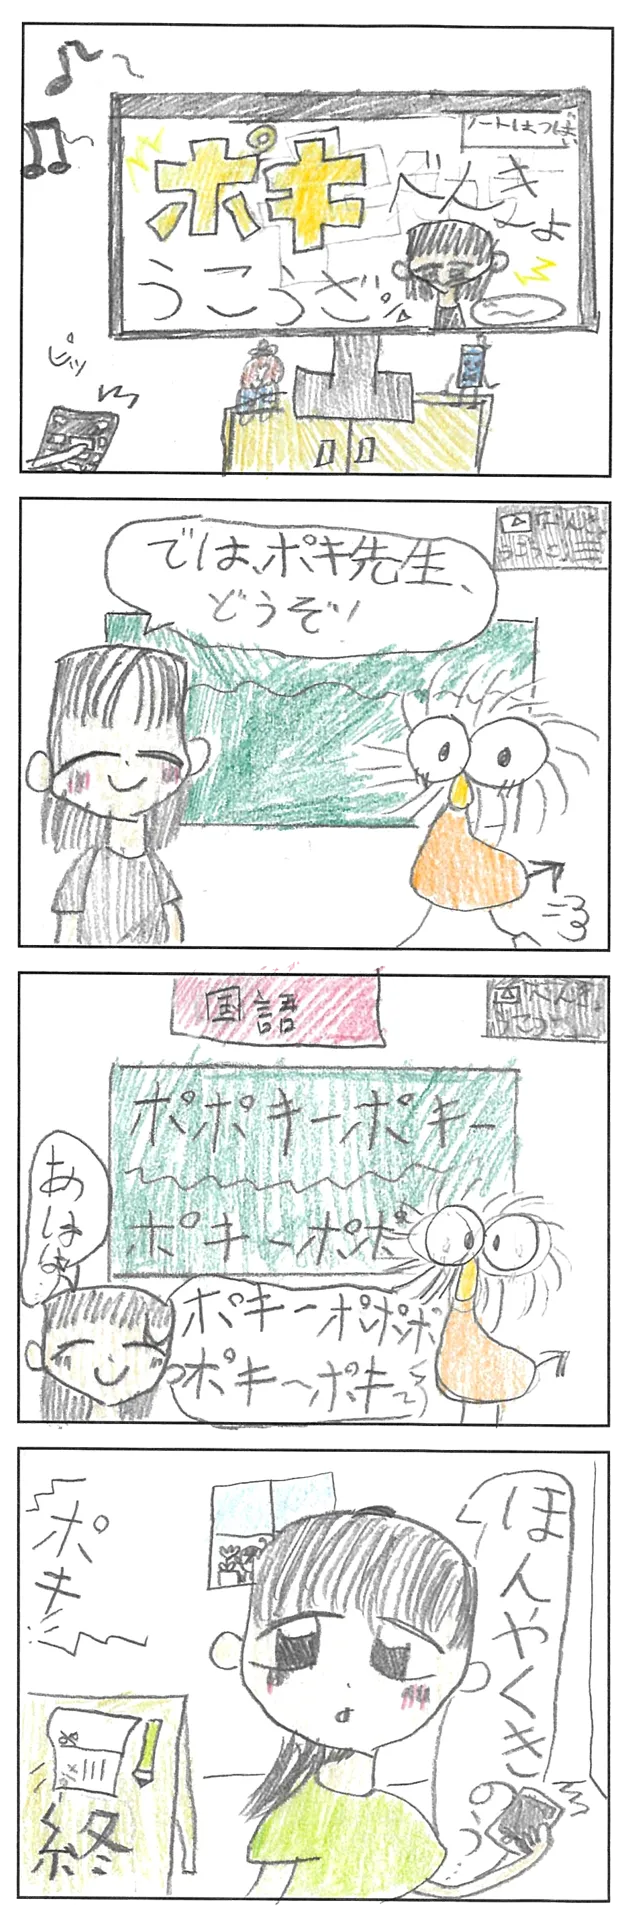 ノートはつばい
ポキ
べんきょ
うこうざ
ピッ
では、ポキ先生、
どうぞ！
べんき
国語
べんき
あはは
ポポキーポキー
ポキーポポ
ポキーポポポ
ポキ〜ポキ〜
ほんやくきのう…
ポキ
終